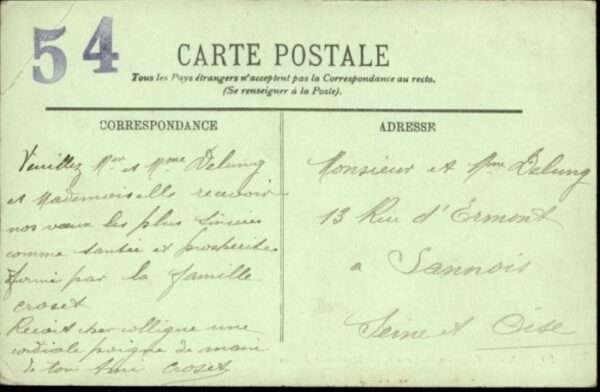 54
CARTE POSTALE
Tous les Pays étrangers n'acceptent pas la Correspondance au recto.
(Se renseigner à la Poste).
CORRESPONDANCE
Veuillez Mr et Mme Delung
et Mademoiselle recevoir
nos vœux les plus sincères
comme santée et prosperitée
formé par la famille
croset
Recoit cher colligue une
cordiale poigne de main
de ton ami croset
ADRESSE
Monsieur et Mme Delung
13 Rue d'Ermont
a Sannois
Seine et Oise